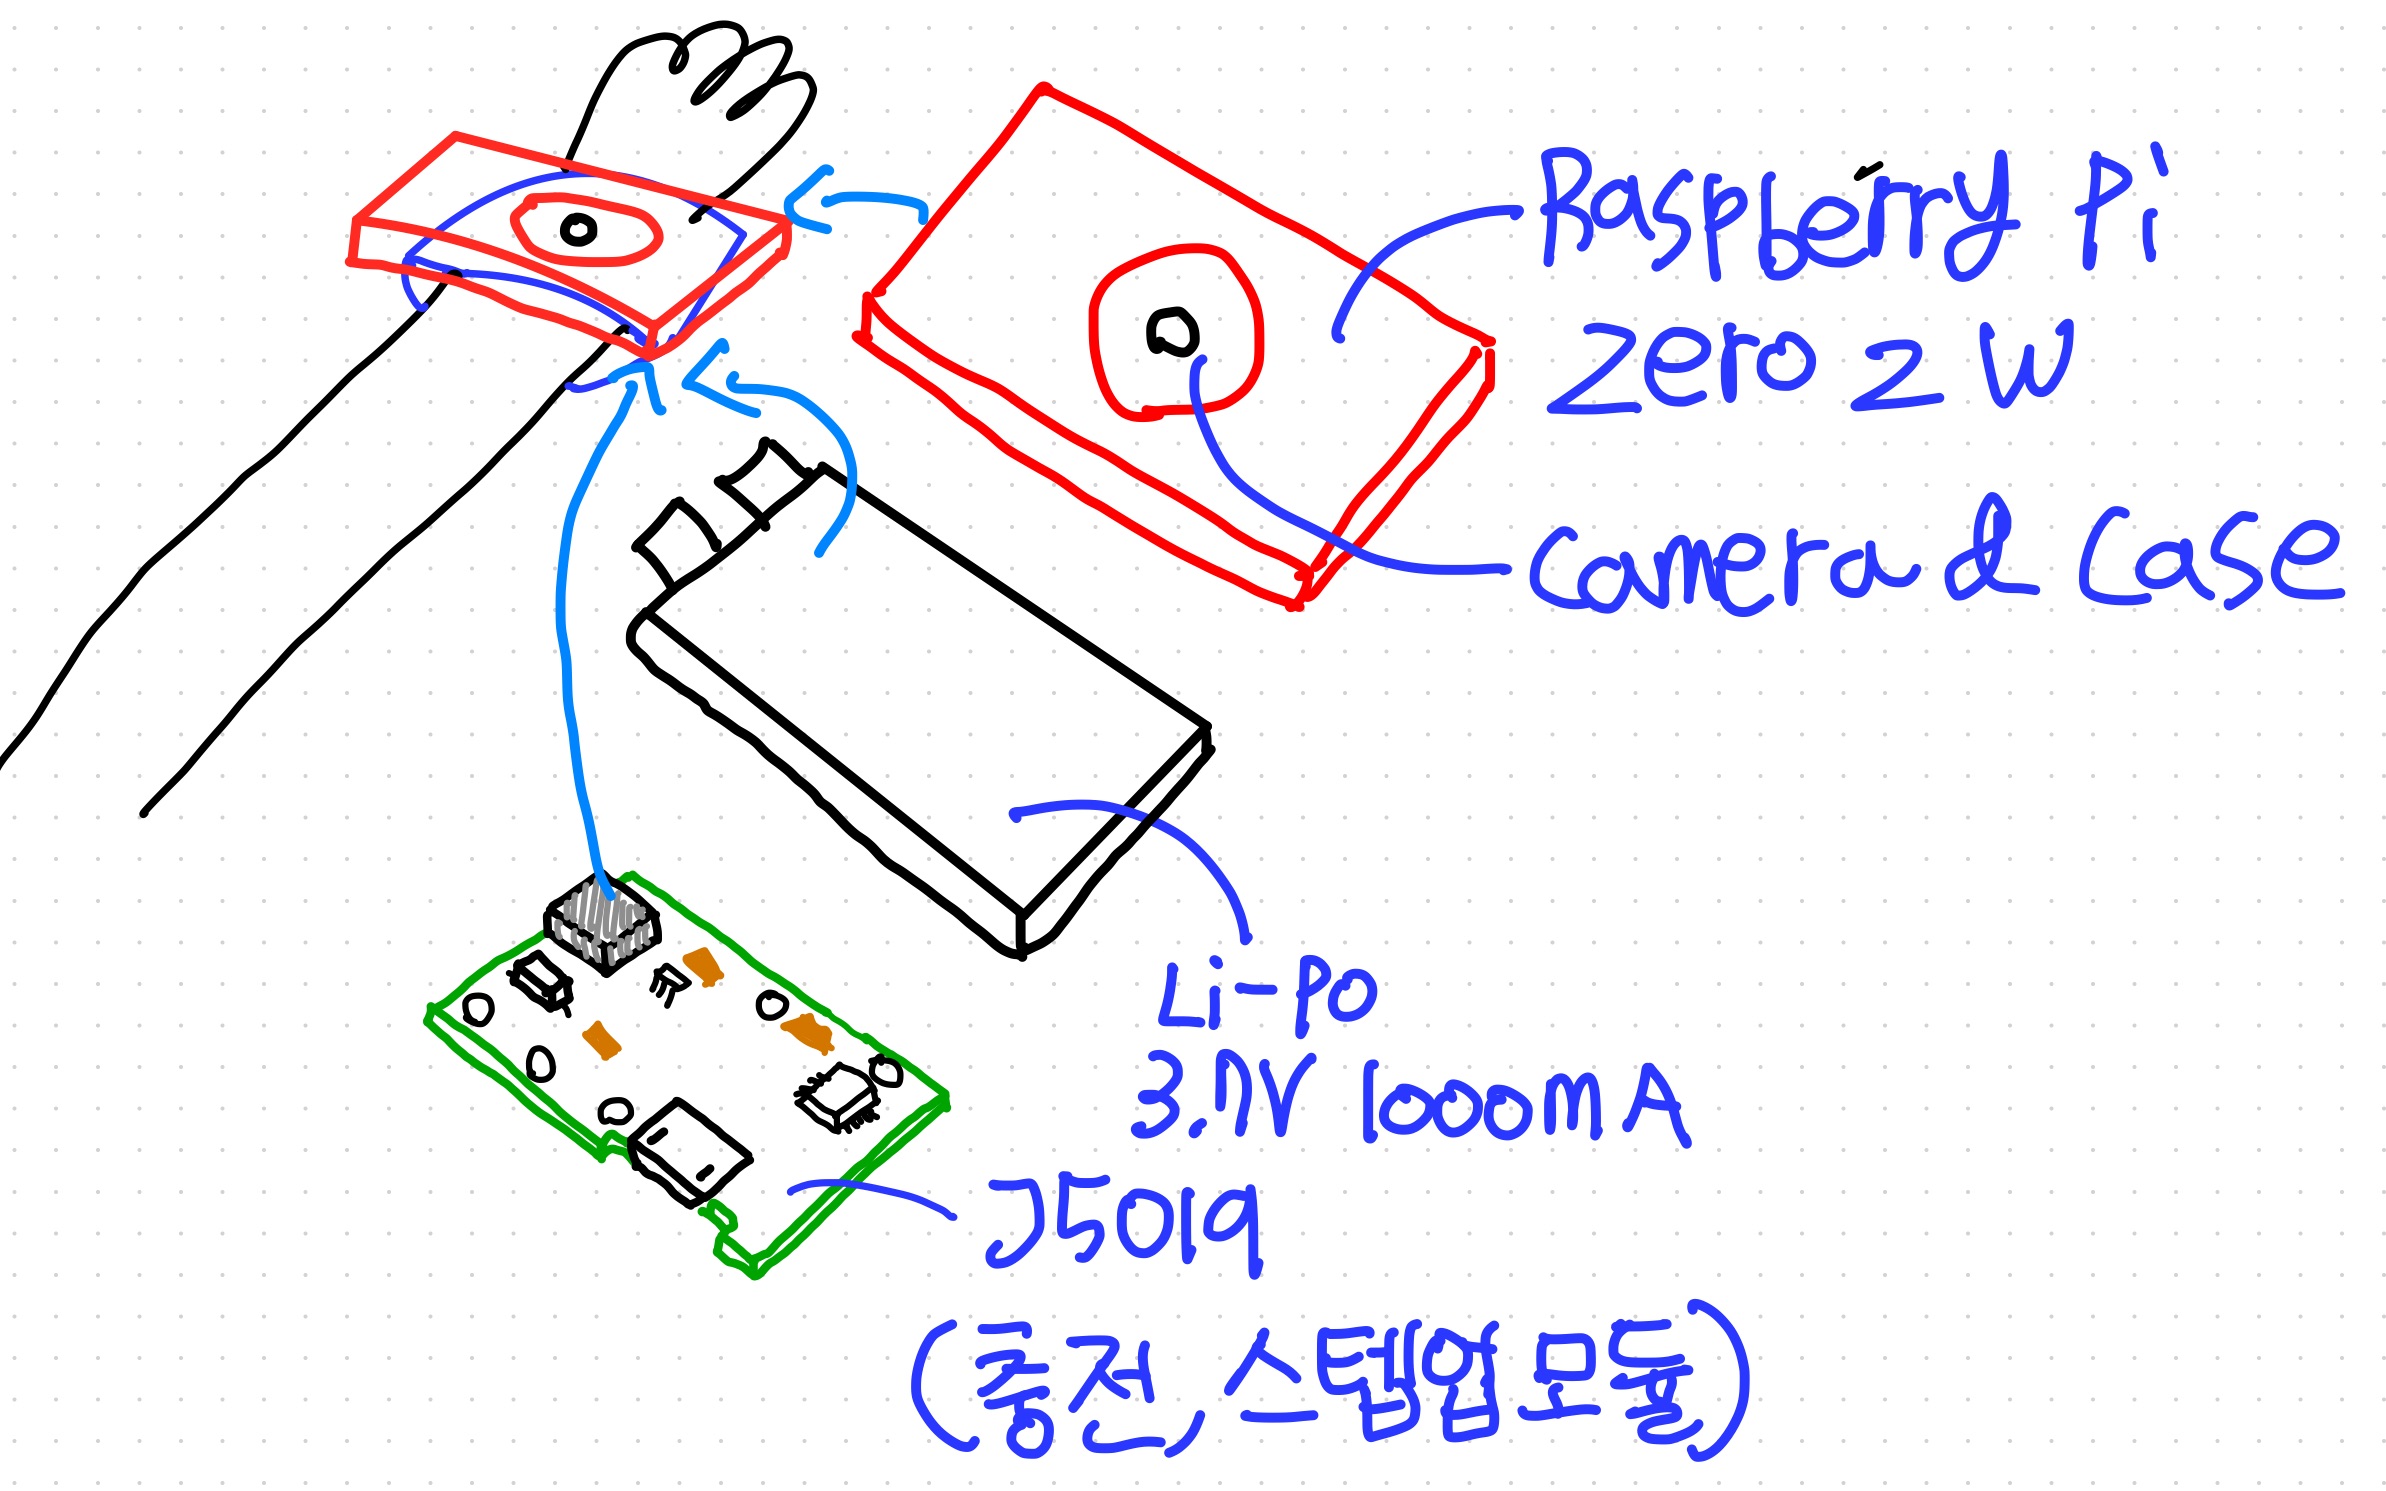 Raspberry Pi
zero 2 W
camera & case
Li-po
3.7V 1000mA
J5019
(충전, 스텝업모듈)